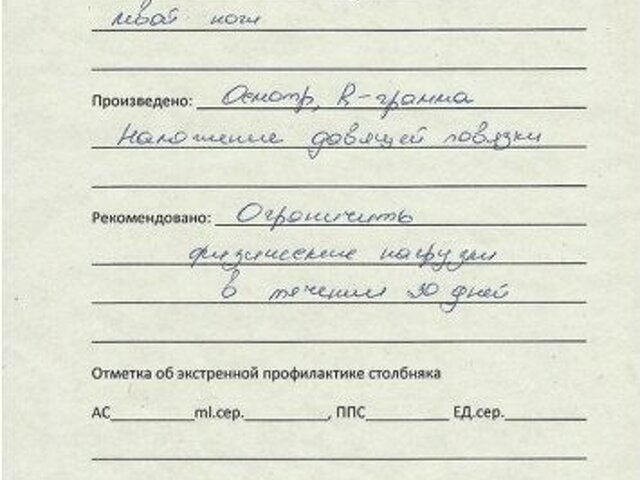 левой ноги
Произведено: Осмотр, R-грамма
Наложение давящей повязки
Рекомендовано: Ограничить
физические нагрузки
в течении 30 дней
Отметка об экстренной профилактике столбняка
АС_________ml.сер._________, ППС_________ ЕД.сер._________